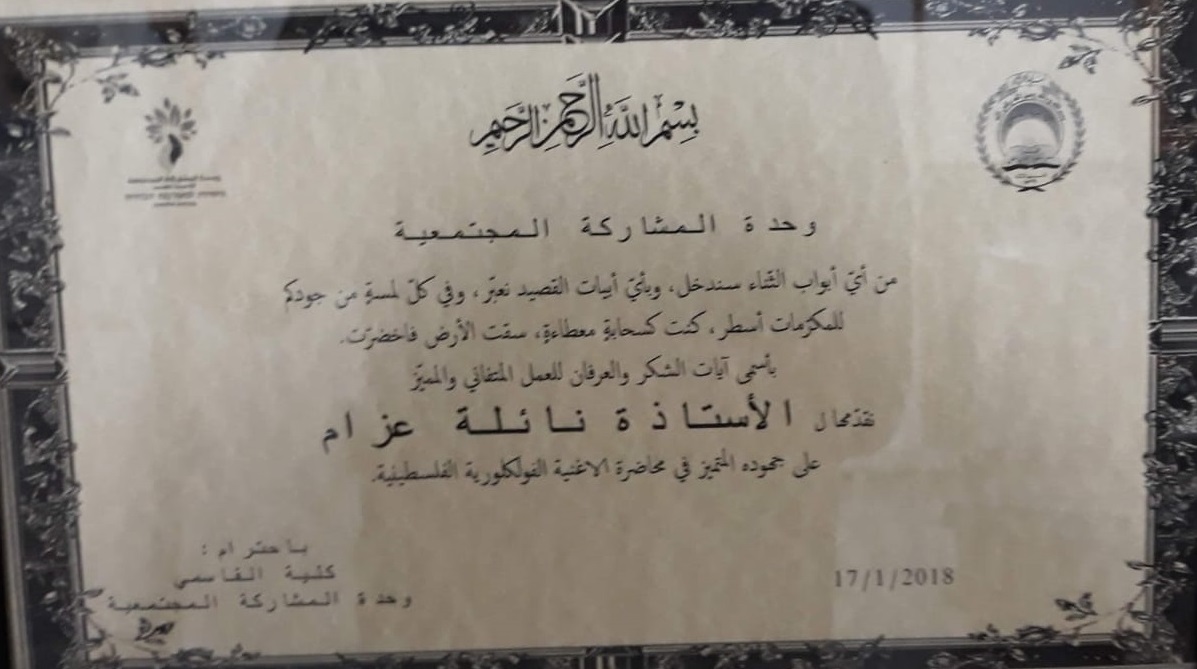 بسم الله الرحمن الرحيم
وحدة المشاركة المجتمعية
من أيّ أبواب الثّناء سندخل، وبأيّ أبيات القصيد نعبّر، وفي كلّ لمسةٍ من جودكم
للمكرّمات أسطر، كنت كسحابةٍ معطاءةٍ، سقت الأرض فاخضرّت.
بأسمى آيات الشكر والعرفان للعمل المتفاني والمميّز
نقدّمها ل الأستاذة نائلة عزام
على جهوده المتميز في محاضرة الاغنية الفولكلورية الفلسطينية.
باحترام:
كلية القاسمي
وحدة المشاركة المجتمعية
17/1/2018